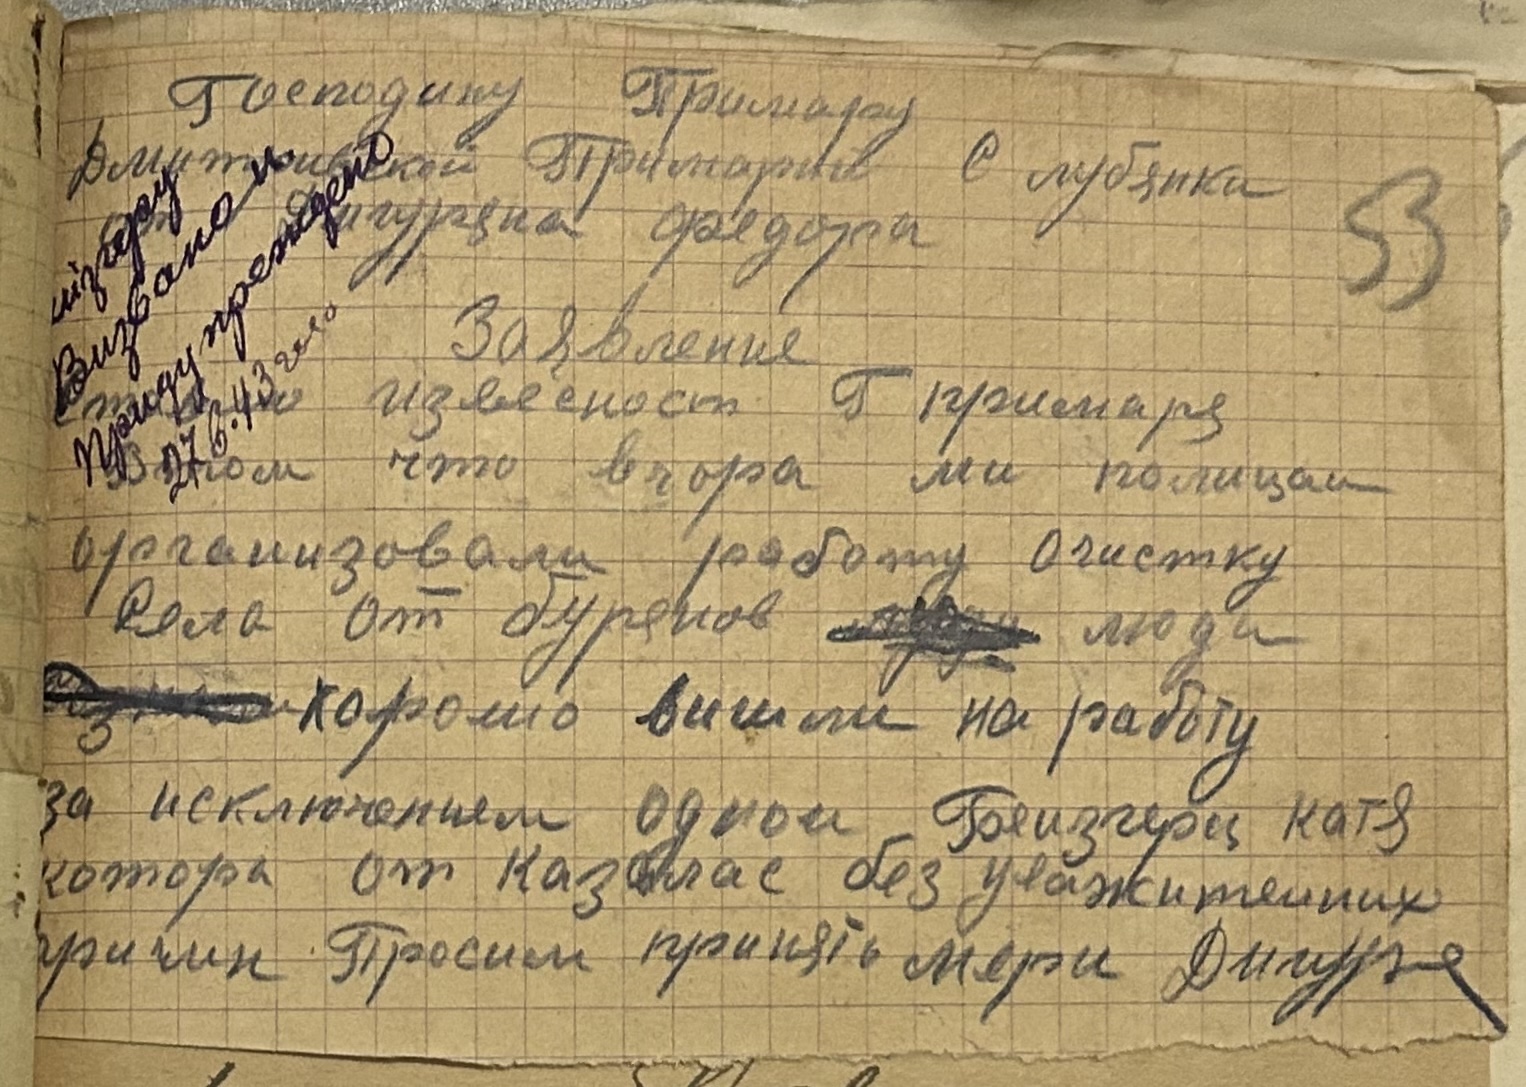 Господину Примару
Дмитровской Примарии С лубянки
от Дигуряна федора
53
Заявление
извесност Г примаря
Втом что вчора ми полицаи
организовали работу очистку
Села от бурянов люди
хорошо вишли на работу
за исключением одном Грейзгерц катя
котора отказалас без уважителних
причин Просим принять мери Дигуря
Визвано и
предупреждено
27.6.43 года